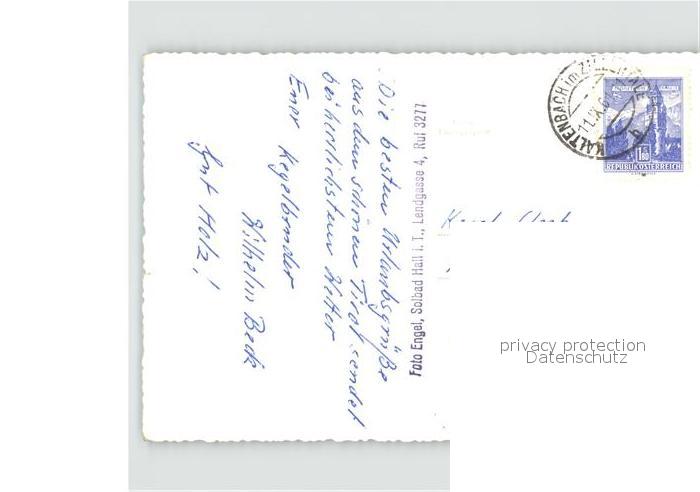 Die besten Urlaubsgrüße
aus dem schönen Tirol sendet
bei herrlichstem Wetter
Euer Kegelbruder
Wilhelm Beck
Gut Holz!
Foto Engel, Solbad Hall i. T., Lendgasse 4, Ruf 3277
KALTENBACH im ZILLERTAL
1.80
REPUBLIK ÖSTERREICH
privacy protection
Datenschutz